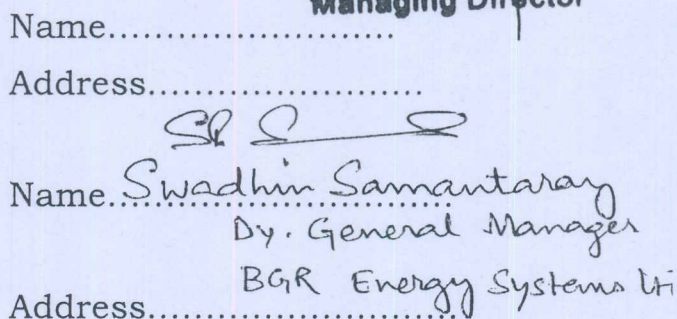 Managing Director
Name..........................
Address.........................
Name. Swadhin Samantaray
Dy. General Manager
BGR Energy Systems Lti
Address............................